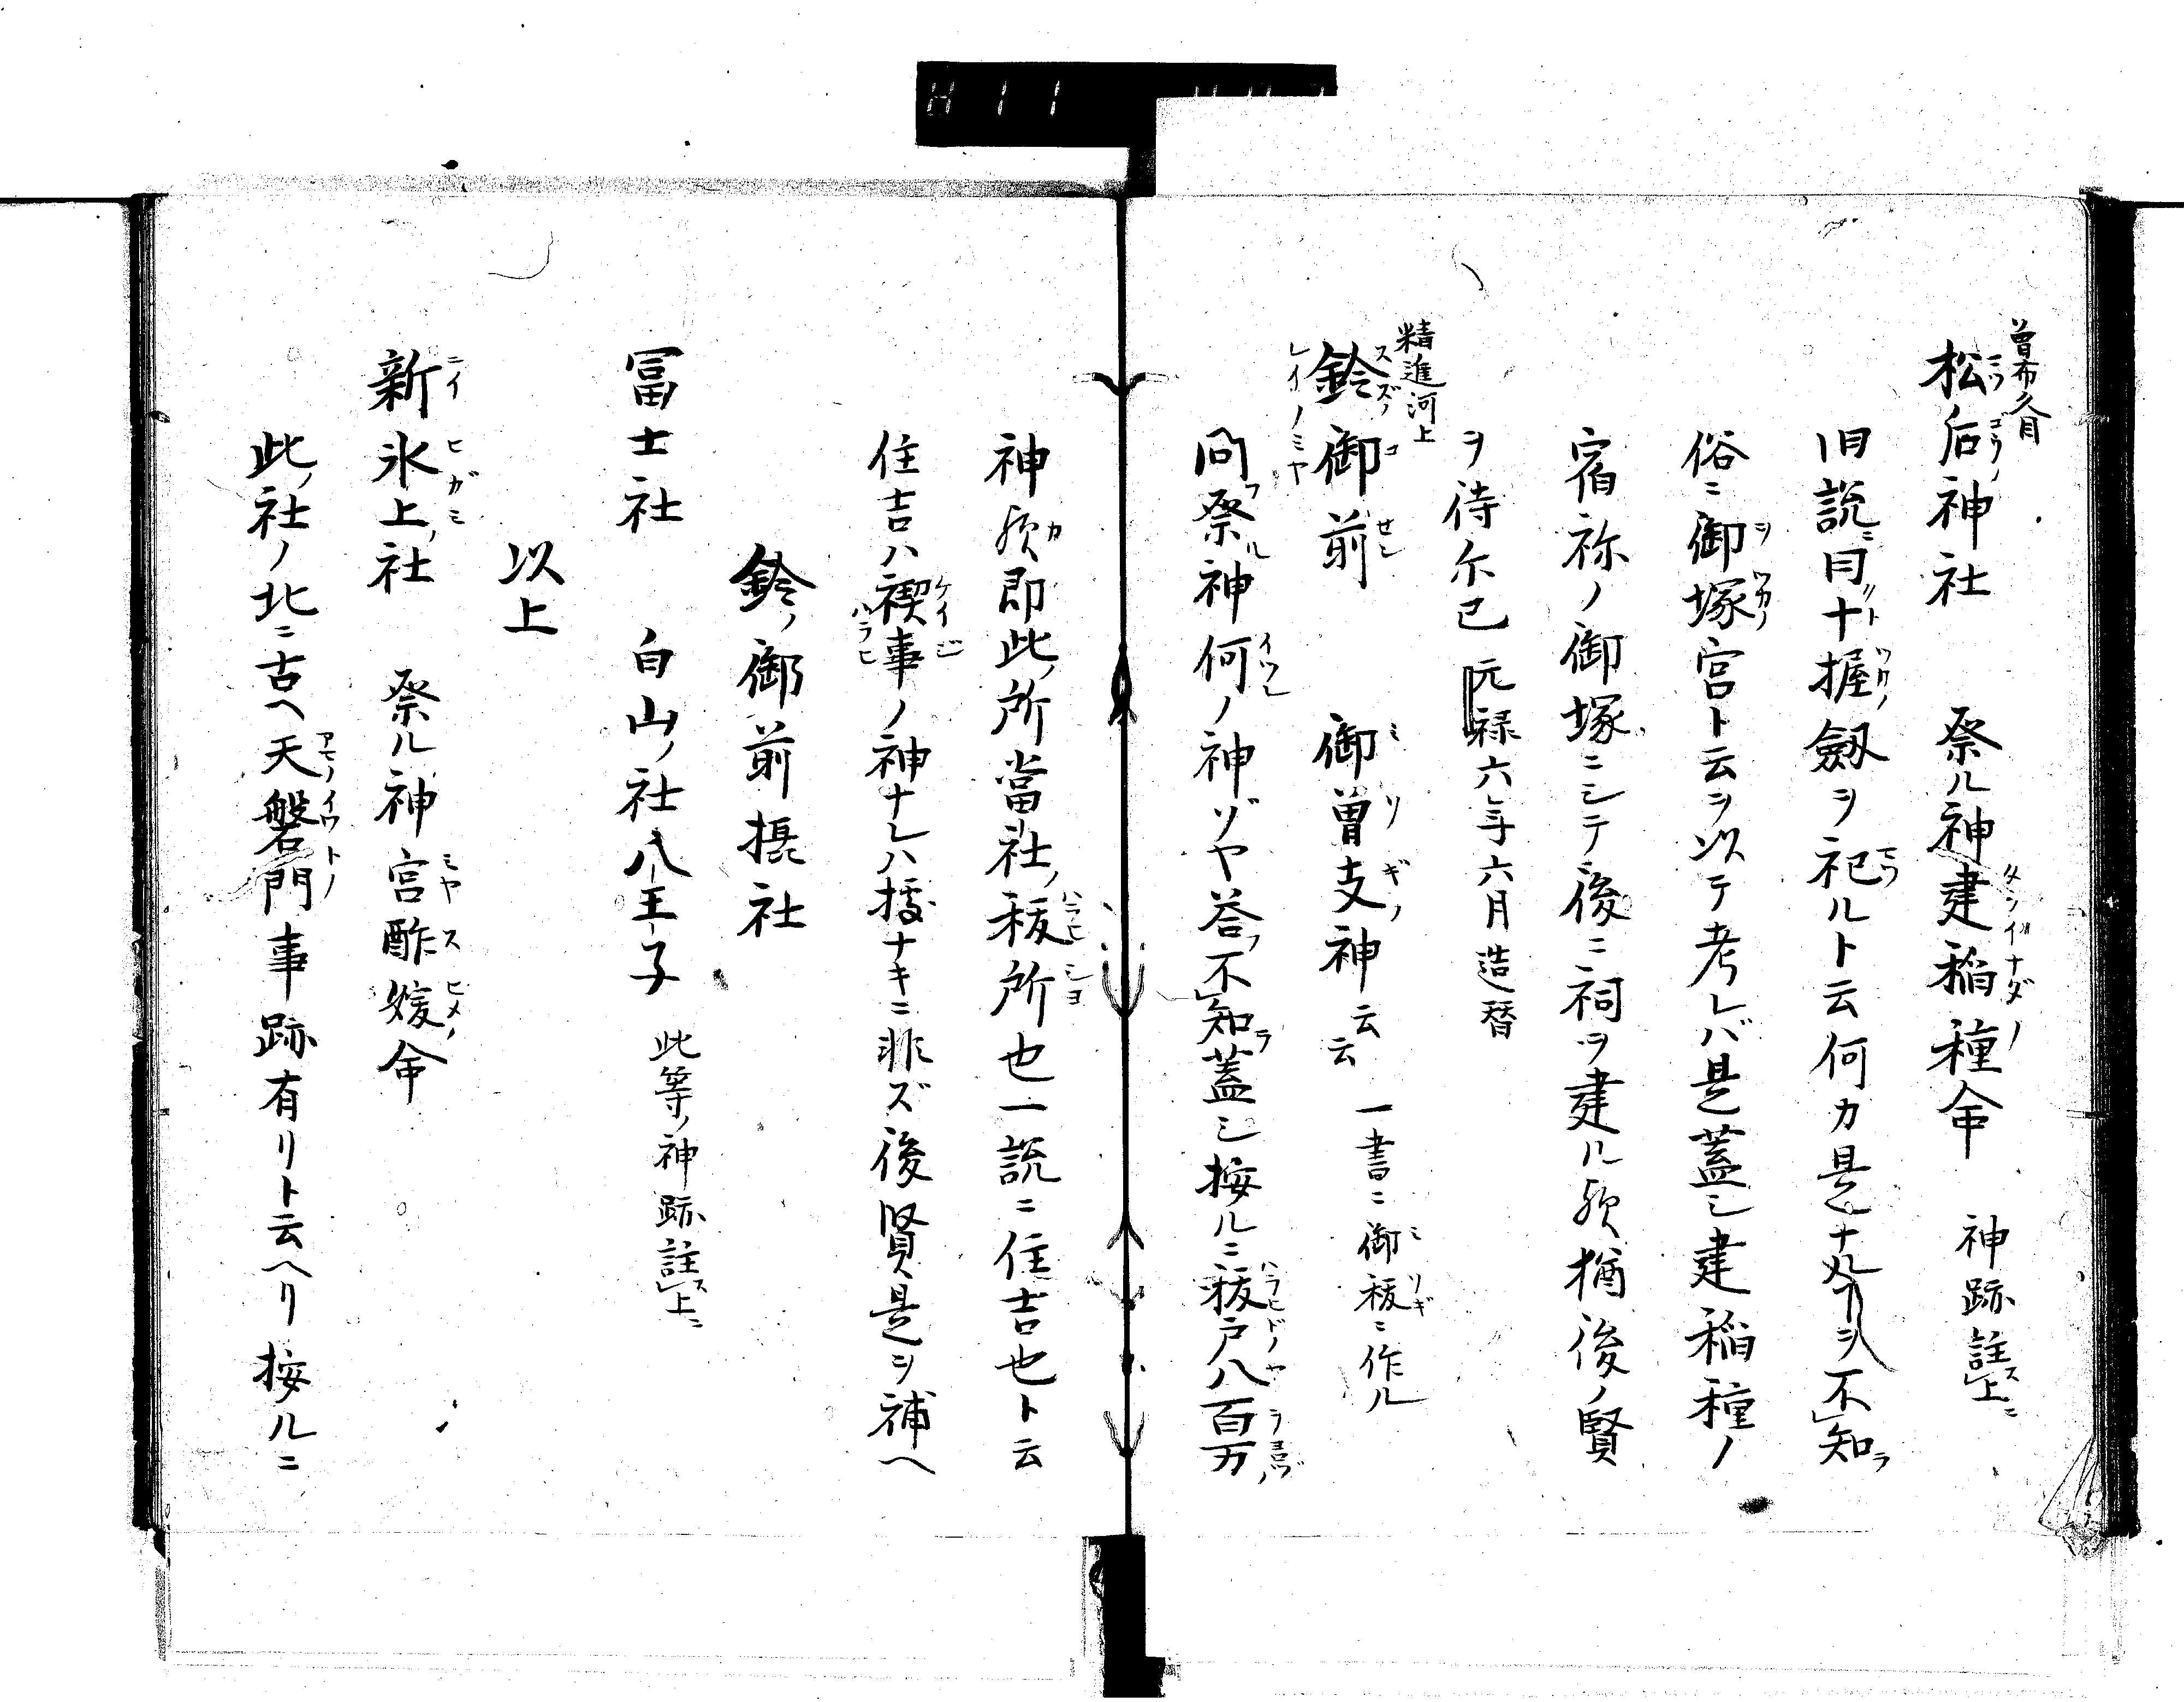 曽布久目
松后神社　祭ル神建稲種命　神跡註上ニ
旧説ニ曰十握劔ヲ祀ルト云何カ是ナルヿヲ不知ラ
俗ニ御塚宮ト云ヲ以テ考レバ是蓋シ建稲種ノ
宿祢ノ御塚ニシテ後ニ祠ヲ建ル歟猶後ノ賢
ヲ待尓已　元禄六年六月造替
精進河上
鈴御前　御曽支神云云　一書ニ御秡ニ作ル
問フ祭ル神何ノ神ゾヤ荅フ不知ラ蓋シ按ルニ秡戸八百万
神歟即此ノ所當社ノ秡所也一説ニ住吉也ト云
住吉ハ禊事ノ神ナレハ據ナキニ非ズ後賢是ヲ補へ
鈴ノ御前摂社
冨士社　白山ノ社八王子　此等ノ神跡註ス上ニ
以上
新氷上ノ社　祭ル神宮酢媛命
此ノ社ノ北ニ古ヘ天磐門ノ事跡有リト云ヘリ按ルニ